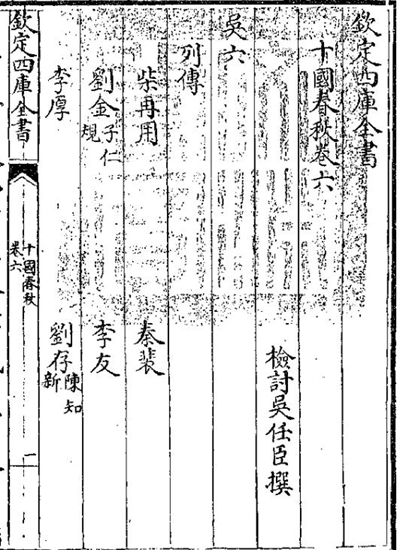 欽定四庫全書
十國春秋卷六
檢討吳任臣撰
吳六
列傳
柴再用 秦裴
劉金子仁規 李友
李厚 劉存陳知新
欽定四庫全書
十國春秋
卷六
一